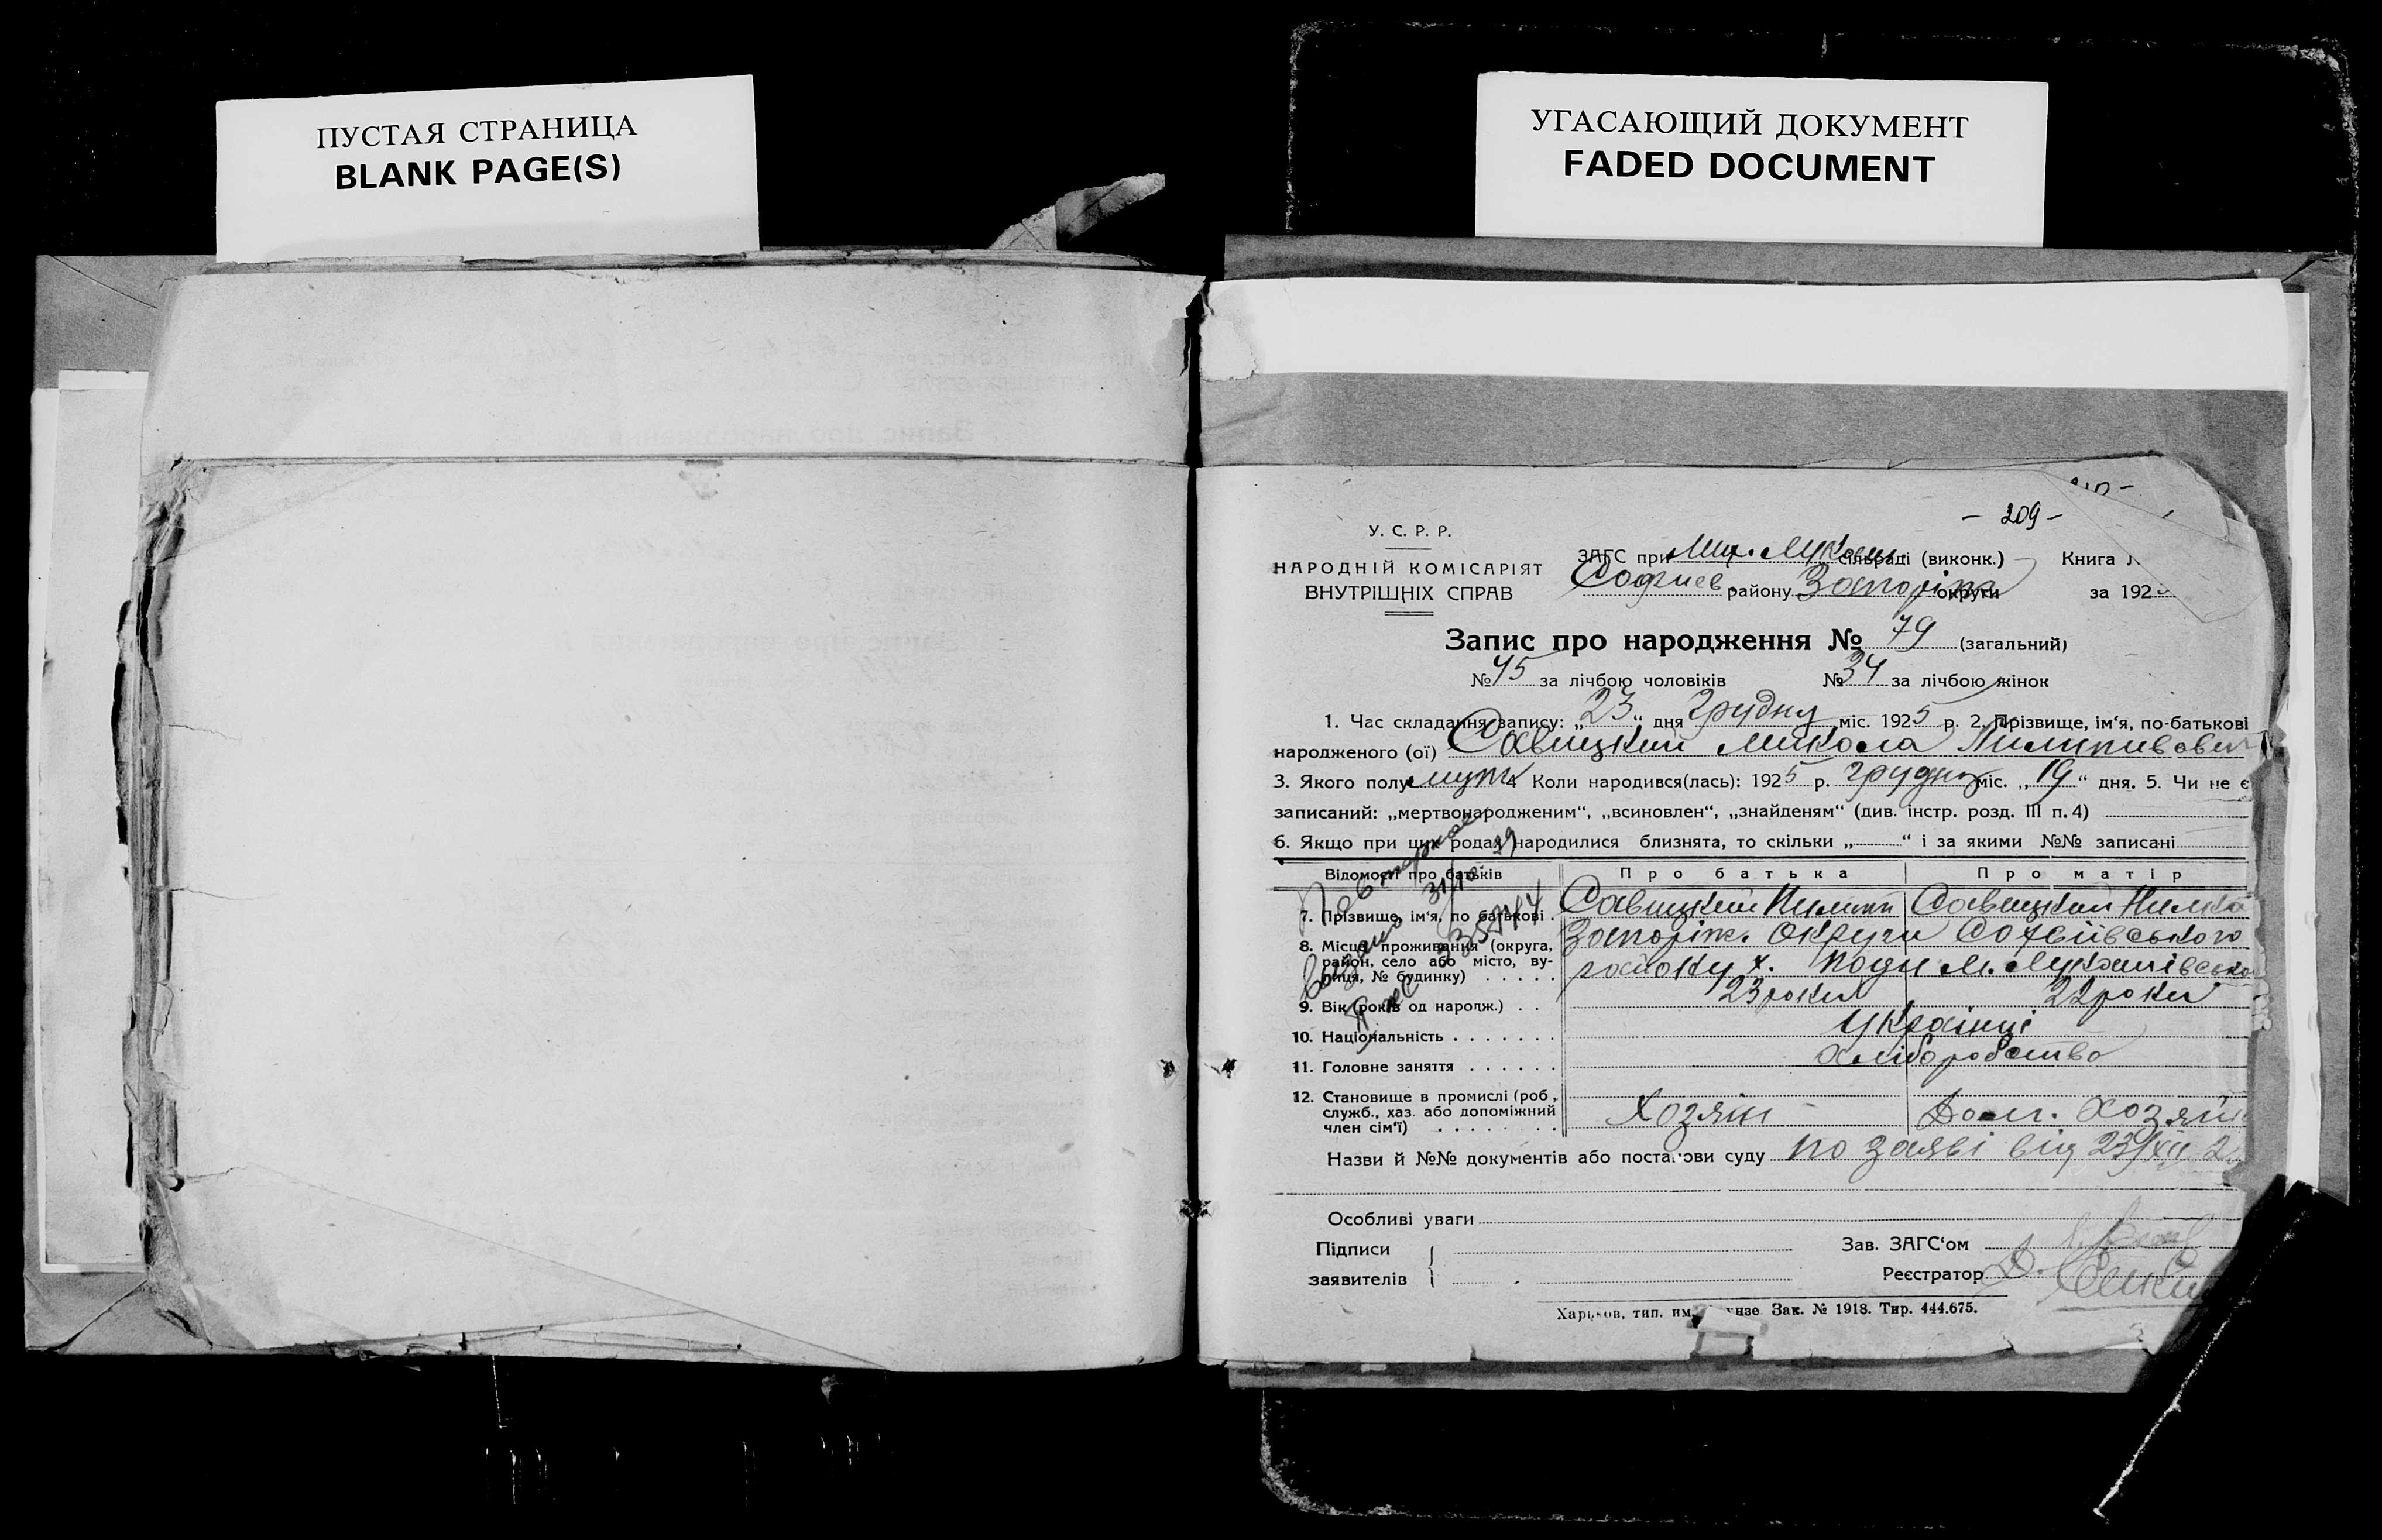 ПУСТАЯ СТРАНИЦА
BLANK PAGE(S)
УГАСАЮЩИЙ ДОКУМЕНТ
FADED DOCUMENT
- 209 -
У. С. Р. Р.
НАРОДНІЙ КОМІСАРІЯТ
ВНУТРІШНІХ СПРАВ
ЗАГС при сільраді (виконк.) Книга
Софиев. району Запоріжж округи за 192
Запис про народження № 79 (загальний)
№ 45 за лічбою чоловіків № 34 за лічбою жінок
1. Час складання запису: „23“ дня Грудня міс. 1925 р. 2. Прізвище, ім‘я, по-батькові
народженого (ої) Савицкий Микола Пилипивович
3. Якого полу муж 4 Коли народився(лась): 1925 р. грудня міс. „19“ дня. 5. Чи не є
записаний: „мертвонародженим“, „всиновлен“, „знайденям“ (див. інстр. розд. III п. 4)
6. Якщо при цих родах народилися близнята, то скільки „ “ і за якими №№ записані
Відомості про батьків Про батька Про матір
7. Прізвище, ім‘я, по батькові . Савицкий Пилип Савицкий
8. Місце проживання (округа, район, село або місто, вулиця, № будинку) . . . . . Запоріж. Округи Софиївського
х. М. Лукашівсько
9. Вік (років од нарощж.) . . 23 роки 22 роки
10. Національність . . . . . . . Українці
11. Головне заняття . . . . . . Хліборобство
12. Становище в промислі (роб.,
служб., хаз. або допоміжний
член сім‘ї) . . . . . . . Хозяін Дом. Хозяй
Назви й №№ документів або постанови суду по заяві від 23/XII 2
Особливі уваги
Підписи
заявителів
Зав. ЗАГС‘ом
Реєстратор
Харьков, тип. им. Зак. № 1918. Тир. 444.675.